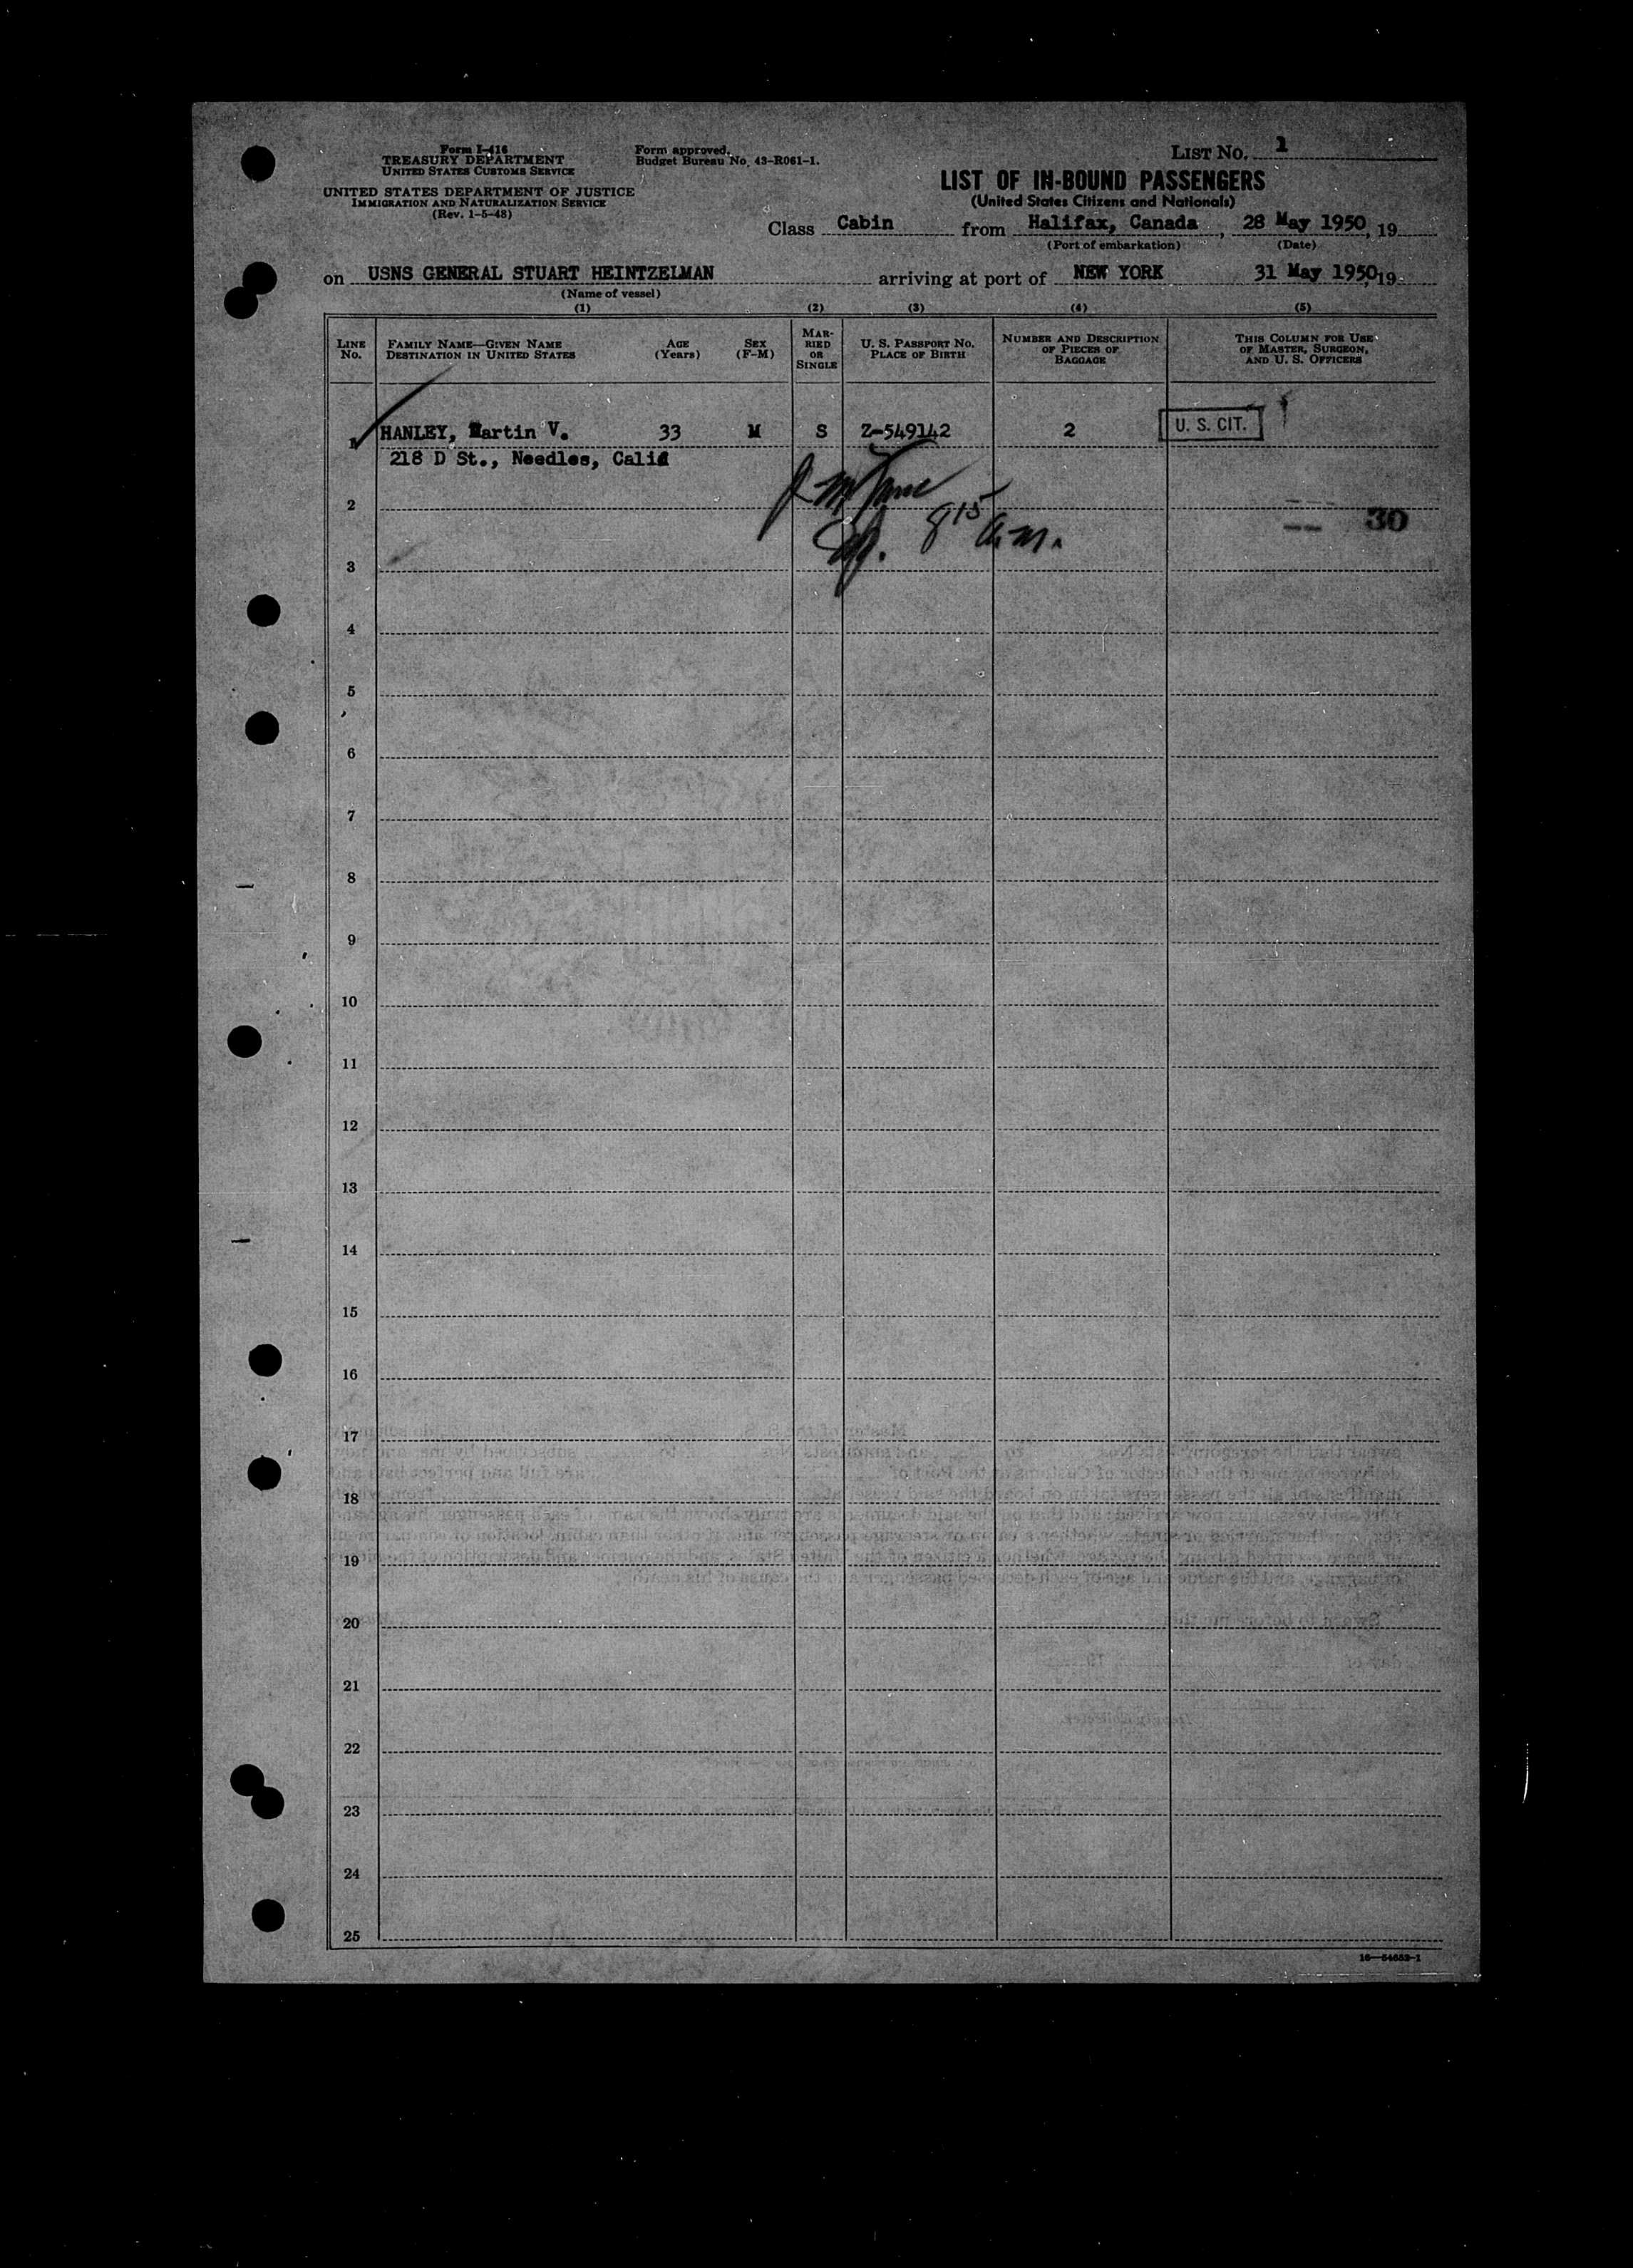 Form I-416
TREASURY DEPARTMENT
UNITED STATES CUSTOMS SERVICE
UNITED STATES DEPARTMENT OF JUSTICE
IMMIGRATION AND NATURALIZATION SERVICE
(Rev. 1-5-48)
Form approved.
Budget Bureau No. 43-R061-1.
LIST No. 1
LIST OF IN-BOUND PASSENGERS
(United States Citizens and Nationals)
Class Cabin from Halifax, Canada, 28 May 1950, 19
(Port of embarkation) (Date)
on USNS GENERAL STUART HEINTZELMAN arriving at port of NEW YORK 31 May 1950, 19
(Name of vessel)
(1) (2) (3) (4) (5)
LINE No.
FAMILY NAME—GIVEN NAME
DESTINATION IN UNITED STATES
AGE (Years)
SEX (F-M)
MARRIED OR SINGLE
U. S. PASSPORT NO.
PLACE OF BIRTH
NUMBER AND DESCRIPTION OF PIECES OF BAGGAGE
THIS COLUMN FOR USE OF MASTER, SURGEON, AND U. S. OFFICERS
1 HANLEY, Martin V. 33 M S Z-549142 2 U. S. CIT.
218 D St., Needles, Calif
2
30
8 15 A.M.
3
4
5
6
7
8
9
10
11
12
13
14
15
16
17
18
19
20
21
22
23
24
25